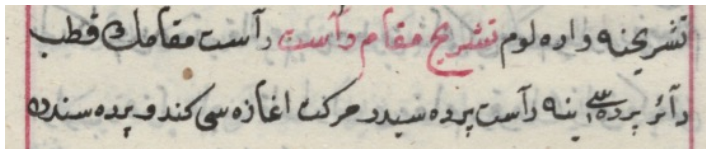 تشريحنه واره لوم تشريح مقام راست راست مقامنك قطب
دائر پرده سى ينه راست پرده سيدر حركت اغازه سى كندو پرده سندن